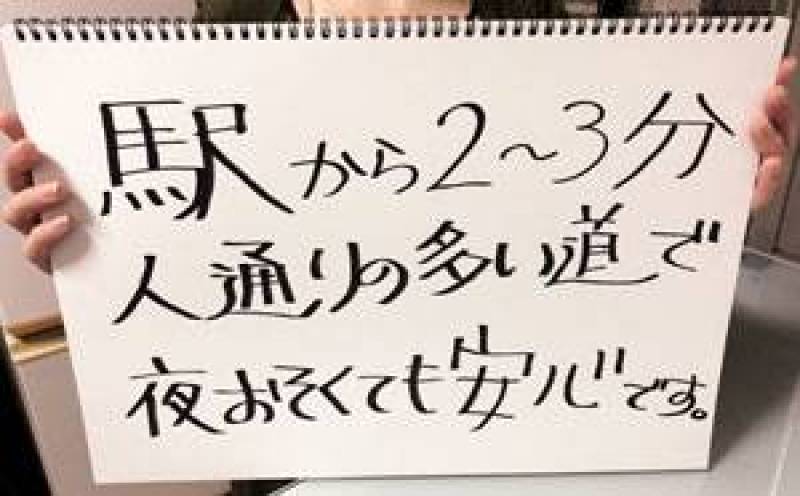 駅から2～3分
人通りの多い道で
夜おそくても安心です。